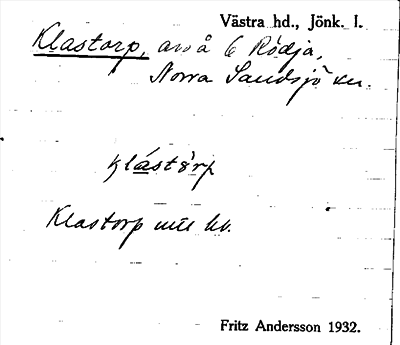 Västra hd., Jönk. l.
Klastorp, avs å 6 Rödja,
Norra Sandsjö sn.
klástòrp
Klastorp
Fritz Andersson 1932.